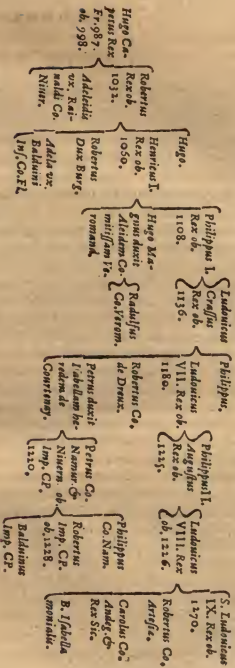 Hugo Ca-
petus Rex
Fr. 987.
ob. 998.
Robertus
Rex ob.
1032.
Hugo.
Henricus I.
Rex ob.
1060.
Robertus
Dux Burg.
Adeleidis
vx. Rai-
naldi Co.
Niuer.
Adela vx.
Balduini
Inf. Co. Fl.
Philippus I.
Rex ob.
1108.
Hugo Ma-
gnus duxit
Aleidem Co-
mitissam Ve-
romand.
Ludouicus
Crassus
Rex ob.
1136.
Radulfus
Co. Verom.
Philippus,
Ludouicus
VII. Rex ob.
1180.
Robertus Co.
de Dreux.
Petrus duxit
Isabellam he-
redem de
Courtenay.
Philippus II.
Augustus
Rex ob.
1223.
Petrus Co.
Namur. &
Niuern. ob.
Imp. CP.
1220.
Ludouicus
VIII. Rex
ob. 1226.
Philippus
Co. Nam.
Robertus
Imp. CP.
ob. 1228.
Balduinus
Imp. CP.
S. Ludouicus
IX. Rex ob.
1270.
Robertus Co.
Artesiæ.
Carolus Co-
Andeg. &
Rex Sic.
B. Isabella
monialis.